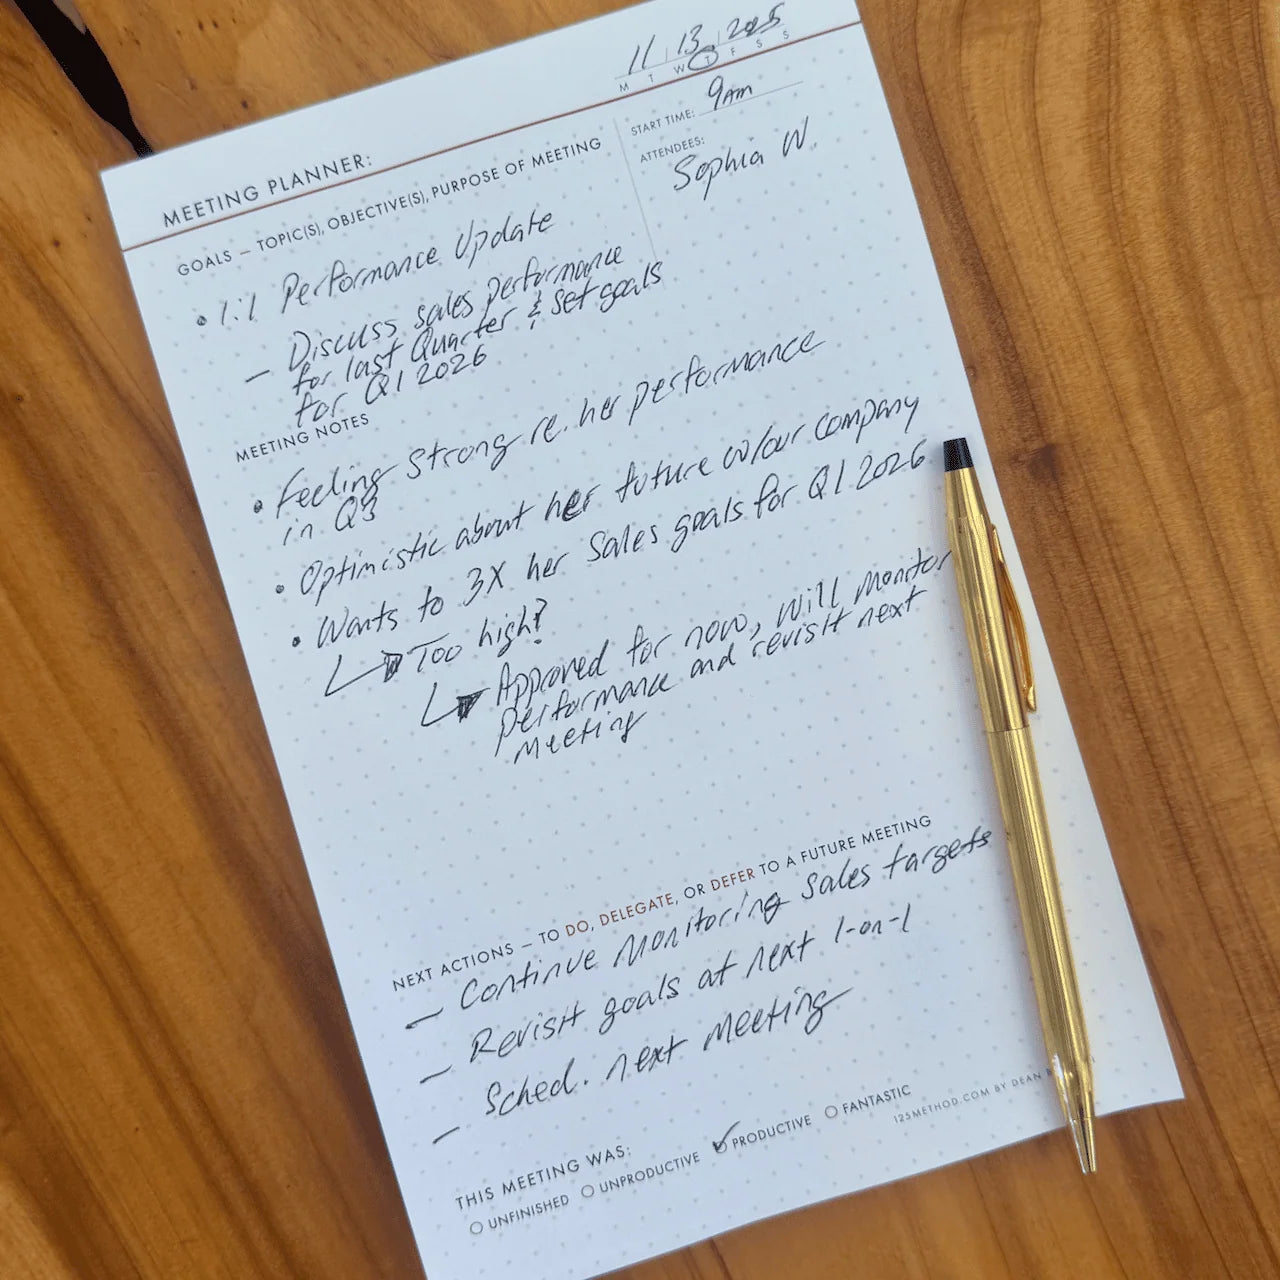 11 13 2025
M T W T F S S
MEETING PLANNER:
START TIME: 9AM
ATTENDEES:
Sophia W.
GOALS — TOPIC(S), OBJECTIVE(S), PURPOSE OF MEETING
• 1:1 Performance Update
— Discuss sales performance
for last Quarter & set goals
for Q1 2026
MEETING NOTES
• Feeling Strong re. her performance
in Q3
• Optimistic about her future w/our company
• Wants to 3X her sales goals for Q1 2026
Too high?
Approved for now, will monitor
performance and revisit next
meeting
NEXT ACTIONS — TO DO, DELEGATE, OR DEFER TO A FUTURE MEETING
— Continue monitoring sales targets
— Revisit goals at next 1-on-1
— Sched. next meeting
THIS MEETING WAS:
UNFINISHED UNPRODUCTIVE ✓ PRODUCTIVE FANTASTIC
125METHOD.COM BY DEAN